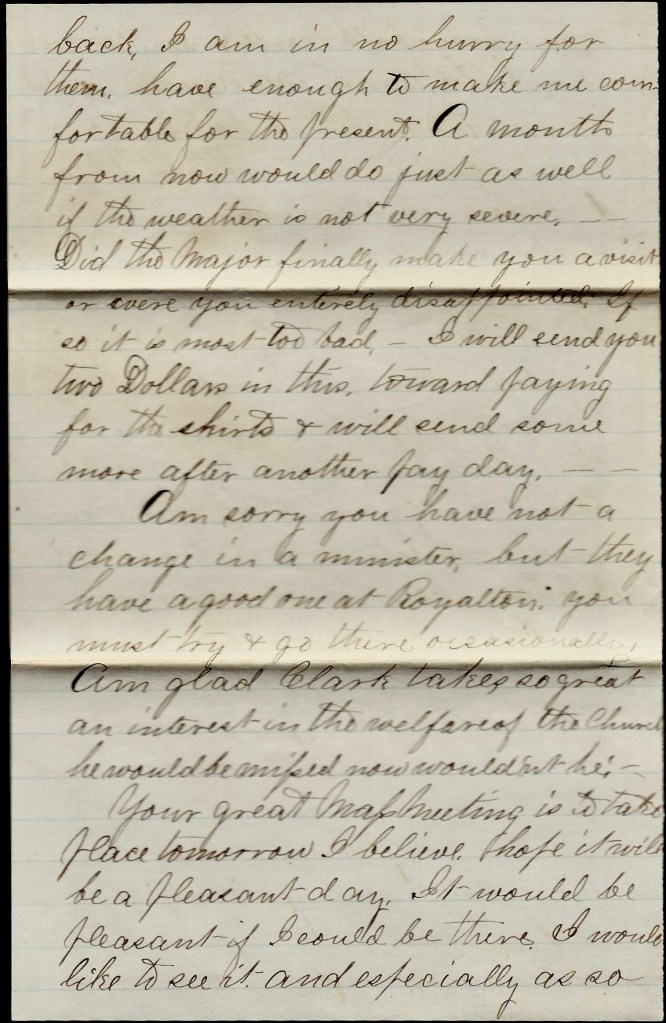 back, I am in no hurry for
them. have enough to make me com-
fortable for the present. A month
from now would do just as well
if the weather is not very severe. — —
Did the Major finally make you a visit
or were you enterely disappointed. If
so it is most too bad. — I will send you
two Dollars in this, toward paying
for the shirts & will send some
more after another pay day. — —
Am sorry you have not a
change in a minister, but they
have a good one at Royalton. you
must try & go there occasionally.
Am glad Clark takes so great
an interest in the welfare of the Church
he would be missed now wouldn't he? —
Your great Mass Meeting is to take
place tomorrow I believe. I hope it will
be a pleasant day. It would be
pleasant if I could be there. I would
like to see it. and especially as so